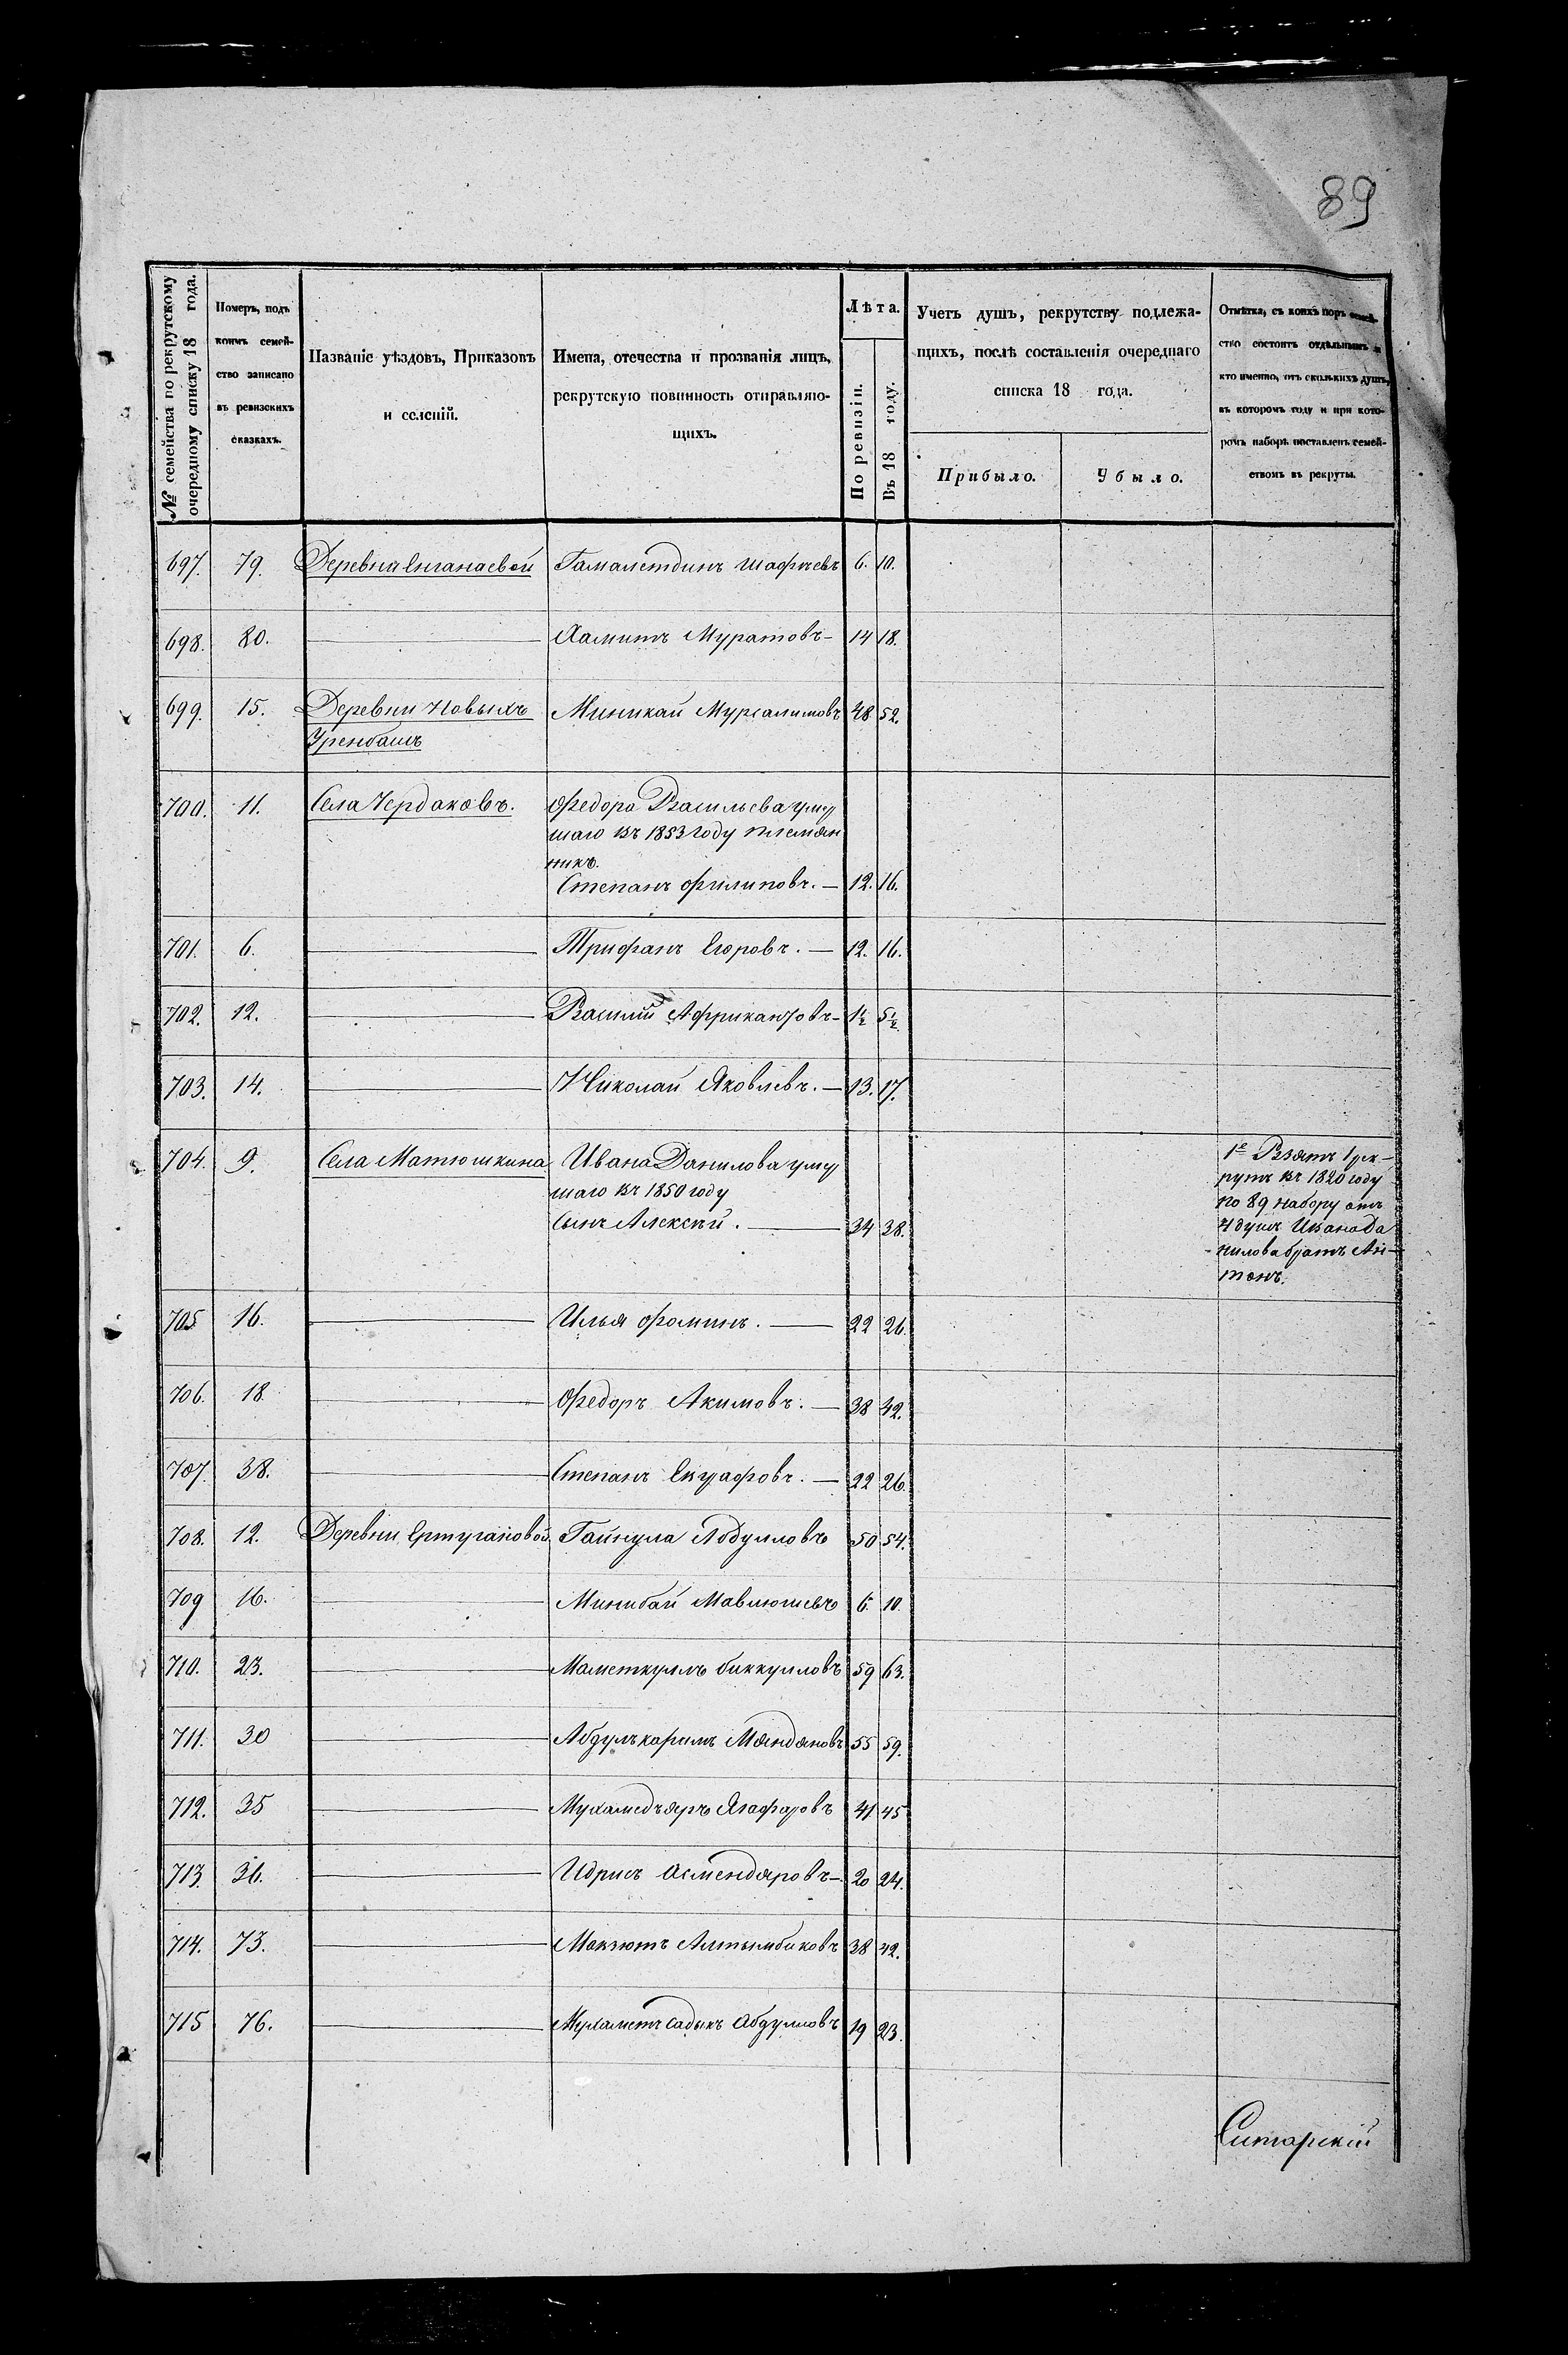 89
№ семейства по рекрутскому очередному списку 18 года.
Номеръ, подъ коимъ семейство записано въ ревизскихъ сказкахъ.
Названіе уѣздовъ, Приказовъ и селеній.
Имена, отечества и прозванія лицъ, рекрутскую повинность отправляющихъ.
Лѣта.
По ревизіи.
Въ 18 году.
Учетъ душъ, рекрутству подлежащихъ, послѣ составленія очереднаго списка 18 года.
Прибыло.
Убыло.
Отмѣтка, съ коихъ поръ семейство состоитъ отдѣльнымъ и кто именно, отъ сколькихъ душъ, въ которомъ году и при которомъ наборѣ поставленъ семействомъ въ рекруты.
697. 79. Деревни Енганаевой Гамалетдинъ Шафѣевъ 6. 10.
698. 80. Хамитъ Муратовъ 14 18.
699. 15. Деревни Новыхъ Миникай Мурсалимовъ 48 52.
Уренбашъ
700. 11. Села Чердаковъ. Федора Васильева умер
шаго въ 1853 году племян
никъ.
Степанъ Филиповъ. 12. 16.
701. 6. Трифанъ Егоровъ. 12. 16.
702. 12. Василій Африкановъ 1½ 5½
703. 14. Николай Яковлевъ. 13. 17.
704. 9. Села Матюшкина Ивана Данилова умер
шаго въ 1850 году
сынъ Алексѣй. 34 38.
1е Взятъ 1 рек-
рутъ въ 1820 году
по 89 набору отъ
4 душъ Ивана Да
нилова братъ Ан-
тонъ.
705 16. Илья Фоминъ. 22 26.
706. 18. Федоръ Акимовъ. 38 42.
707. 38. Степанъ Евграфовъ. 22 26.
708. 12. Деревни Ертугановой Гайнула Абдулловъ 50 54.
709 16. Минибай Мавлюшевъ 6. 10.
710. 23. Маметкулъ Биккуловъ 59 63.
711. 30 Абдулъкаримъ Мандановъ 55 59.
712. 35 Мухамедъяръ Ягафаровъ 41 45
713. 36. Идрисъ Асмендяровъ 20 24.
714. 73. Макзютъ Алтымбиковъ 38 42.
715 76. Мухаметъ Садыкъ Абдулловъ 19 23.
Ситарскій